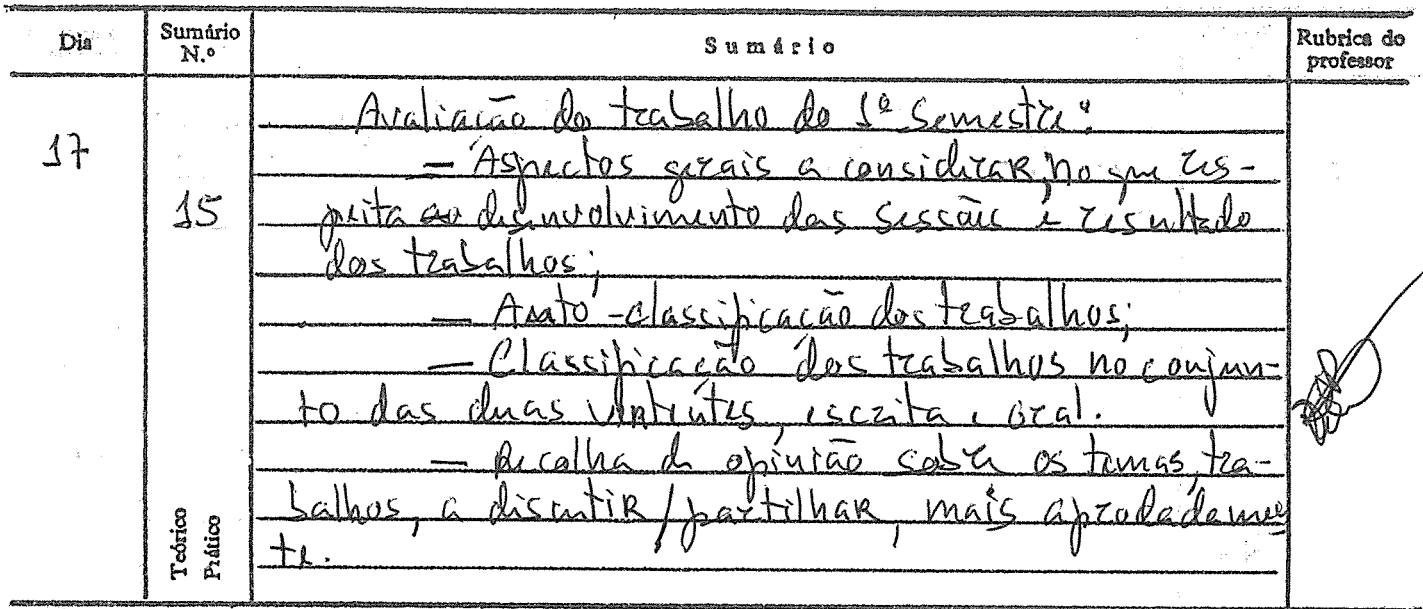 Dia
Sumário N.º
Sumário
Rubrica do professor
17
15
Teórico
Prático
Avaliação do trabalho do 1º Semestre:
— Aspectos gerais a considerar, no que res-
peita ao desenvolvimento das sessões e resultado
dos trabalhos;
— Auto-classificação dos trabalhos;
— Classificação dos trabalhos no conjun-
to das duas vertentes, escrita e oral.
— Recolha de opinião sobre os temas, tra-
balhos, a discutir / partilhar, mais
te.